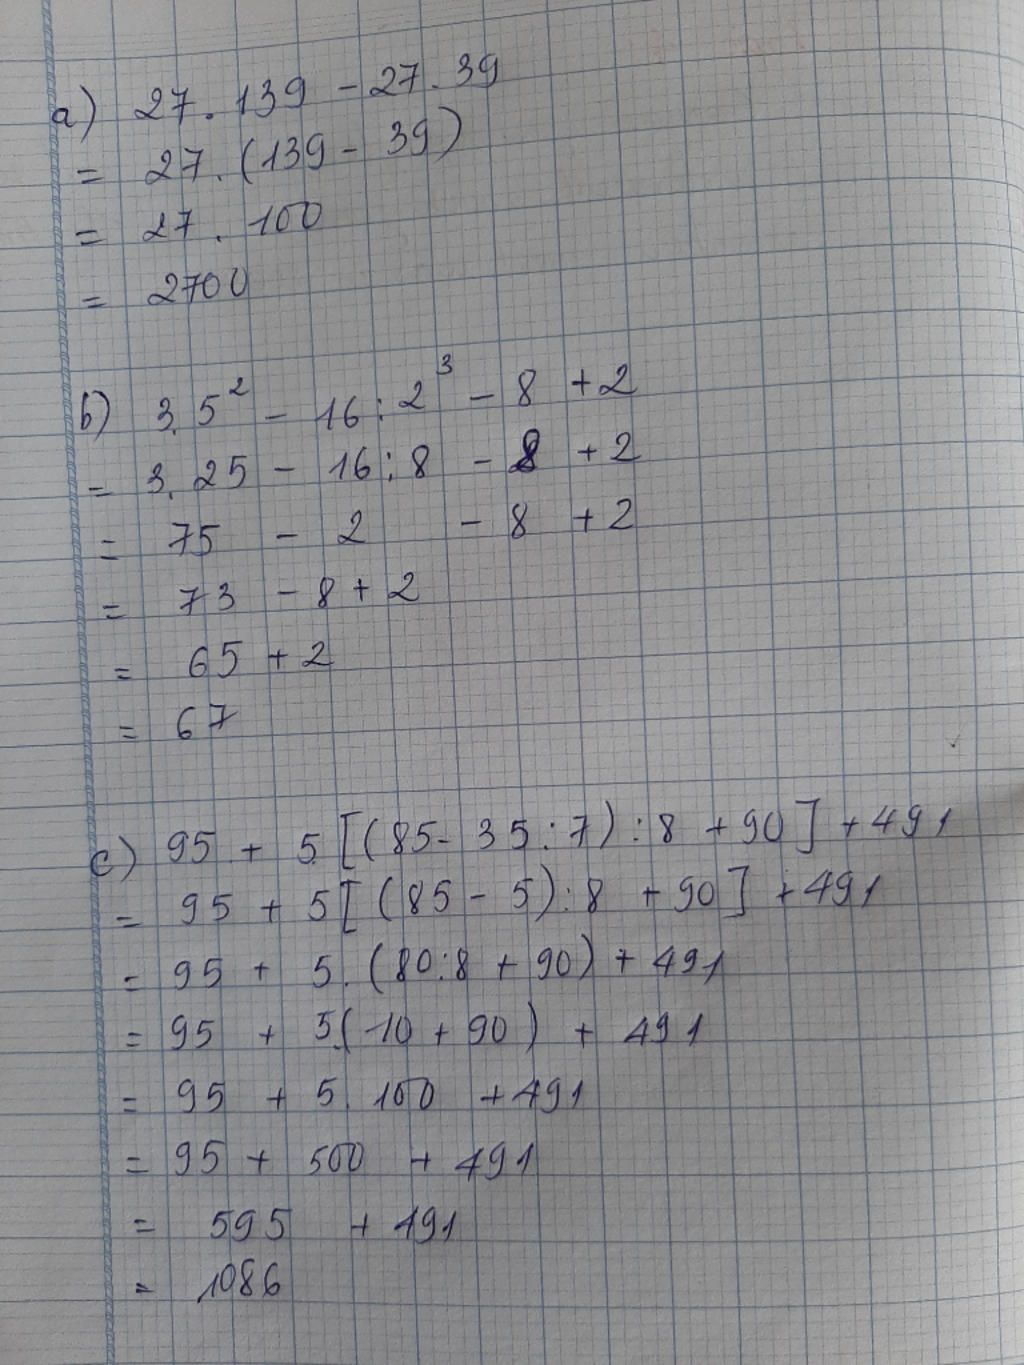 a) 27 . 139 - 27 . 39
= 27 . (139 - 39)
= 27 . 100
= 2700
b) 3. 5² - 16 : 2³ - 8 + 2
= 3. 25 - 16 : 8 - 8 + 2
= 75 - 2 - 8 + 2
= 73 - 8 + 2
= 65 + 2
= 67
c) 95 + 5 [(85 - 35 : 7) : 8 + 90] + 491
= 95 + 5 [(85 - 5) : 8 + 90] + 491
= 95 + 5. (80 : 8 + 90) + 491
= 95 + 5.(10 + 90) + 491
= 95 + 5. 100 + 491
= 95 + 500 + 491
= 595 + 491
= 1086